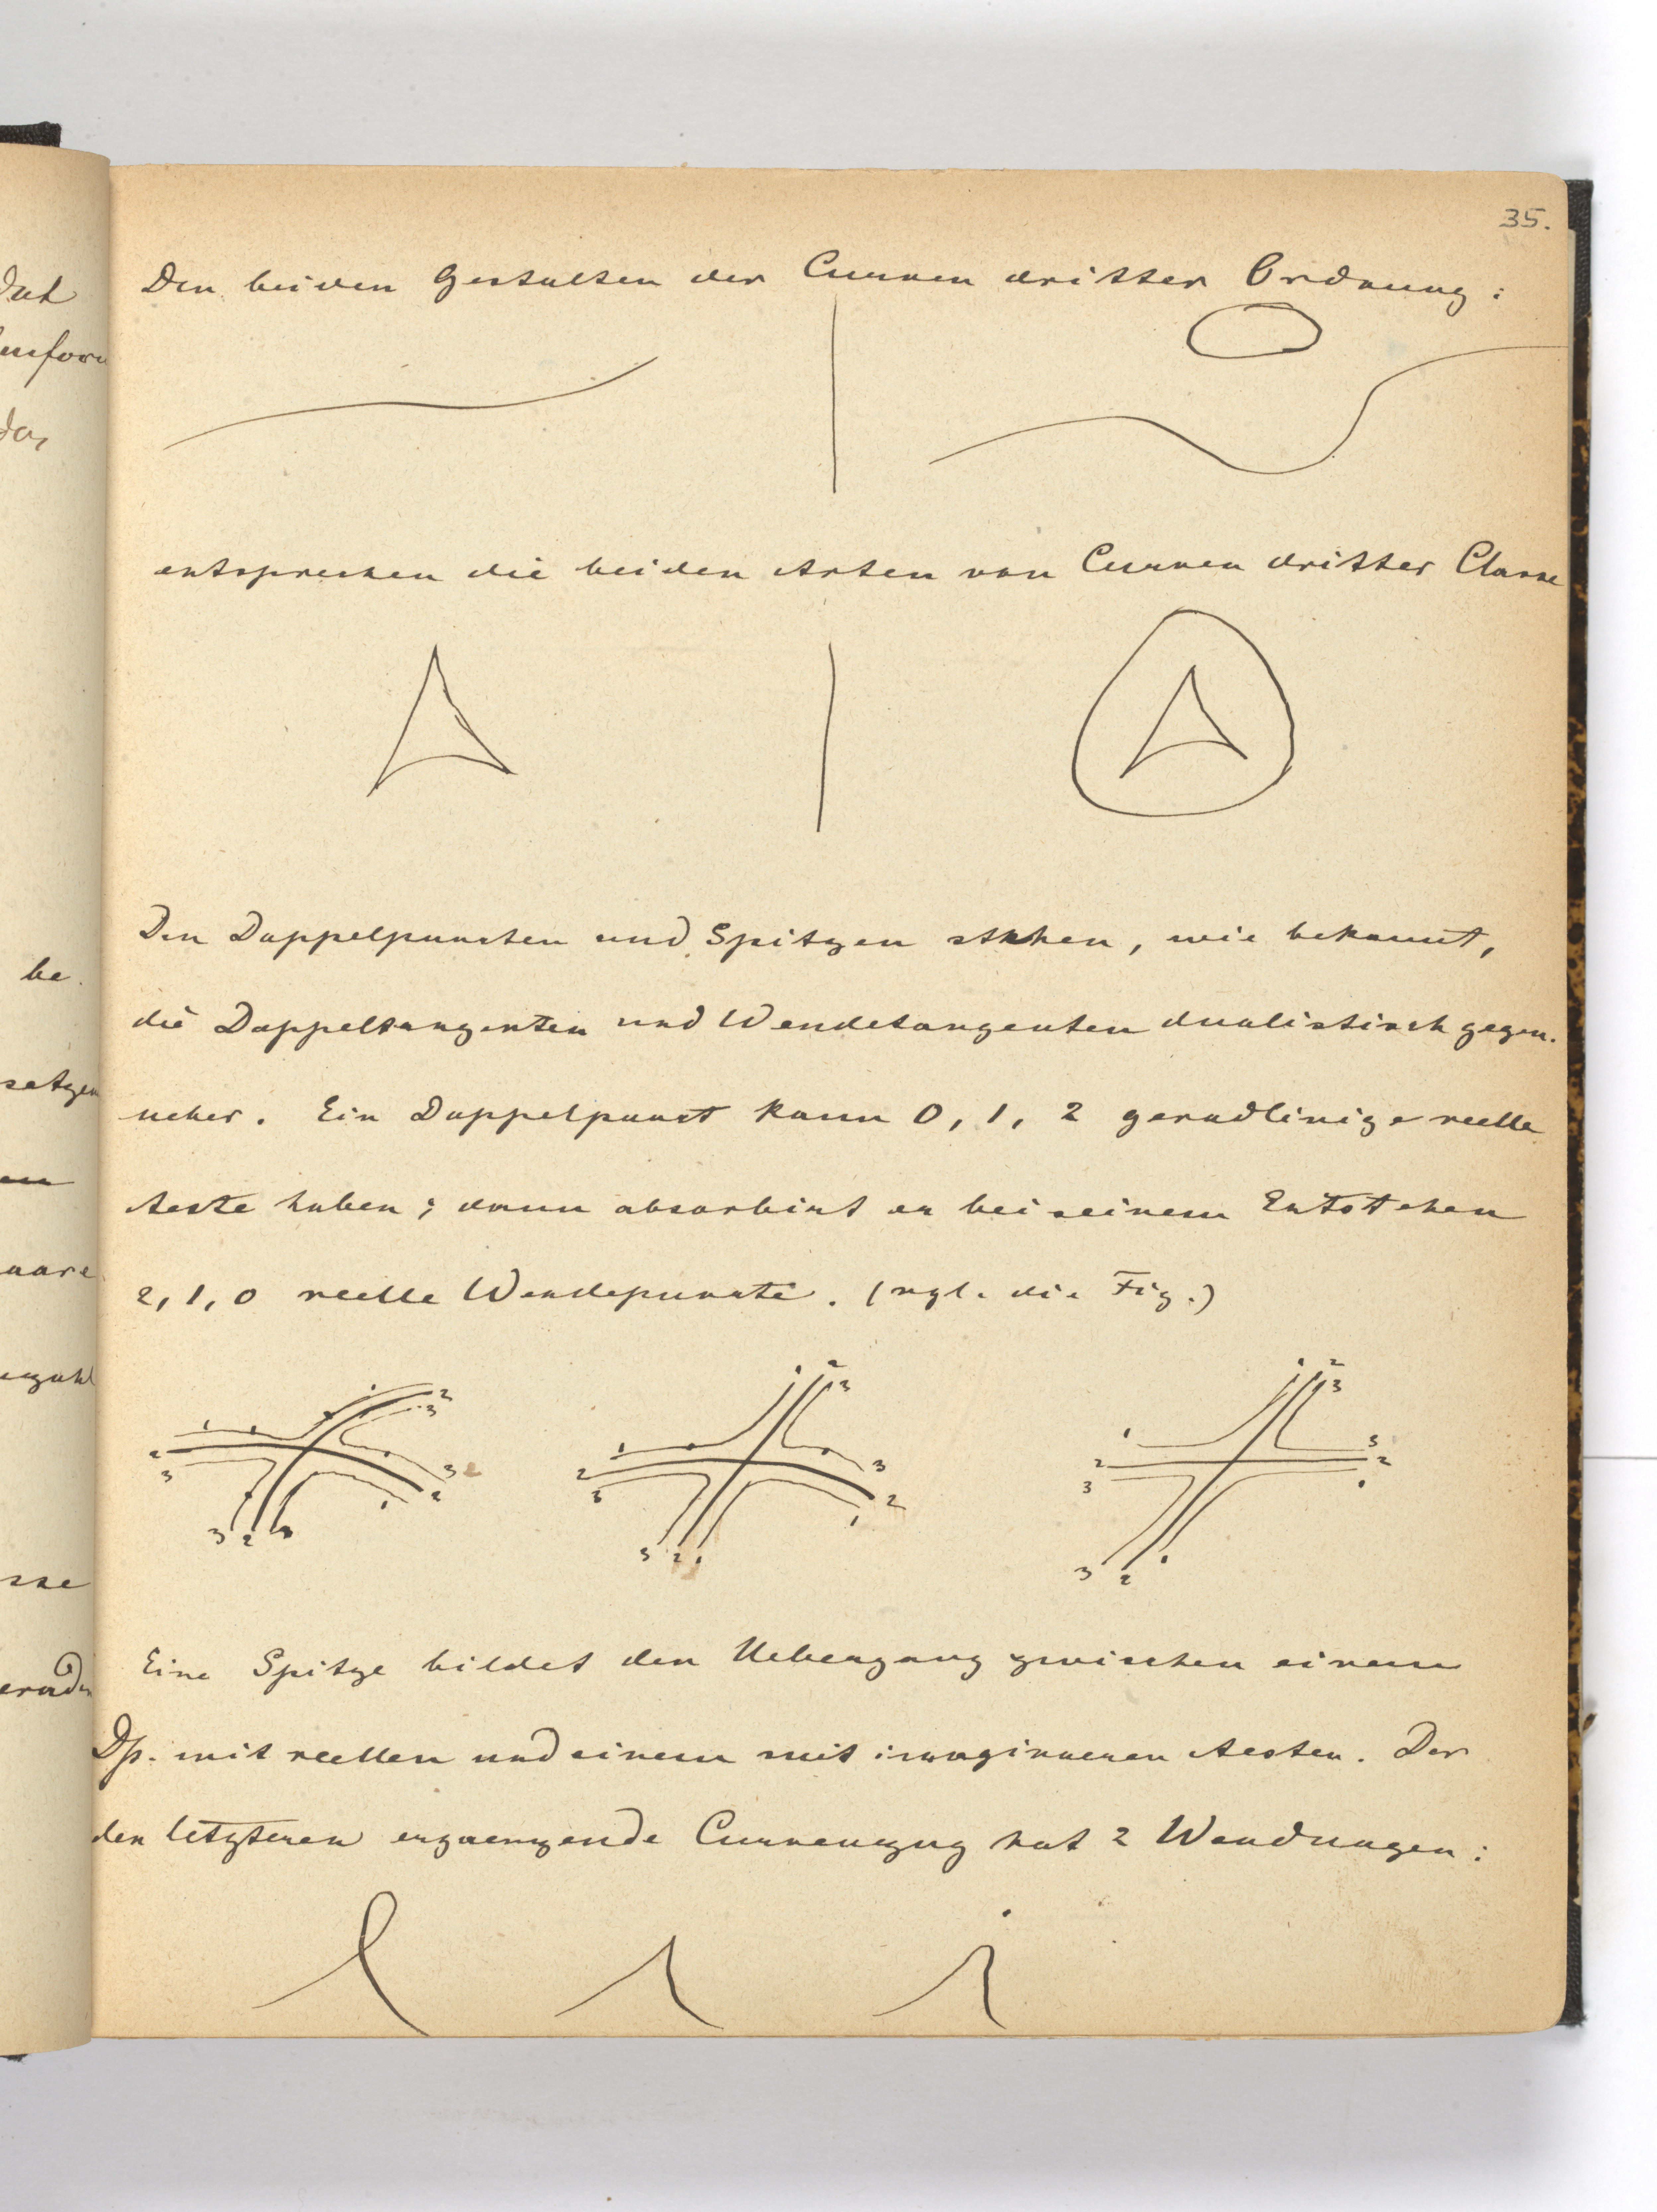 35.
Den beiden Gestalten der Curven dritter Ordnung:
entsprechen die beiden Arten von Curven dritter Classe
Den Doppelpuncten und Spitzen stehen, wie bekannt,
be
die Doppeltangenten und Wendetangenten dualistisch gegen-
setzen
ueber. Ein Doppelpunct kann 0, 1, 2 geradlinige reelle
Aeste haben; dann absorbirt er bei seinem Entstehen
2, 1, 0 reelle Wendepuncte. (vgl. die Fig.)
1 2 3
1 2 3
3 2 1
3 2
1 2 3
1 2 3
3 2 1
3 2 1
1 2 3
1 2 3
3 2 1
3 2 1
Eine Spitze bildet den Uebergang zwischen einem
Dp. mit reellen und einem mit imaginaeren Aesten. Der
den letzteren ergaenzende Curvenzug hat 2 Wendungen: